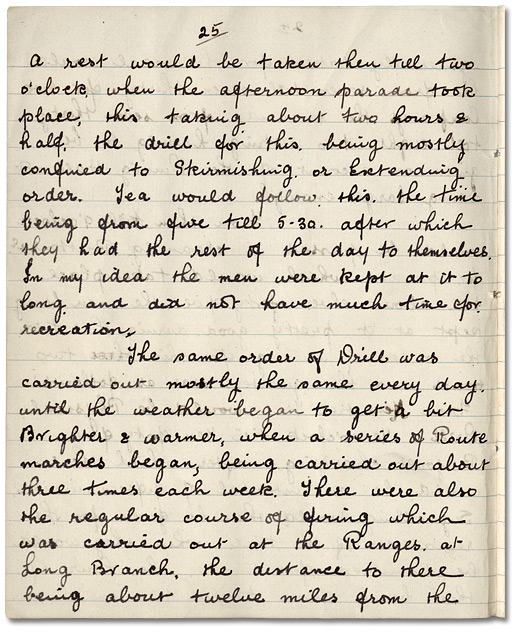 25
A rest would be taken then till two
o'clock, when the afternoon parade took
place, this taking about two hours &
half, the drill for this, being mostly
confined to Skirmishing. or Extending
order. Tea would follow. this. the time
being from five till 5-30. after which
they had the rest of the day to themselves.
In my idea the men were kept at it to
long. and did not have much time for.
recreation.
The same order of Drill was
carried out mostly the same every day.
until the weather began to get a bit
Brighter & warmer, when a series of Route
marches began, being carried out about
three times each week. There were also
the regular course of firing which
was carried out at the Ranges. at
Long Branch, the distance to there
being about twelve miles from the